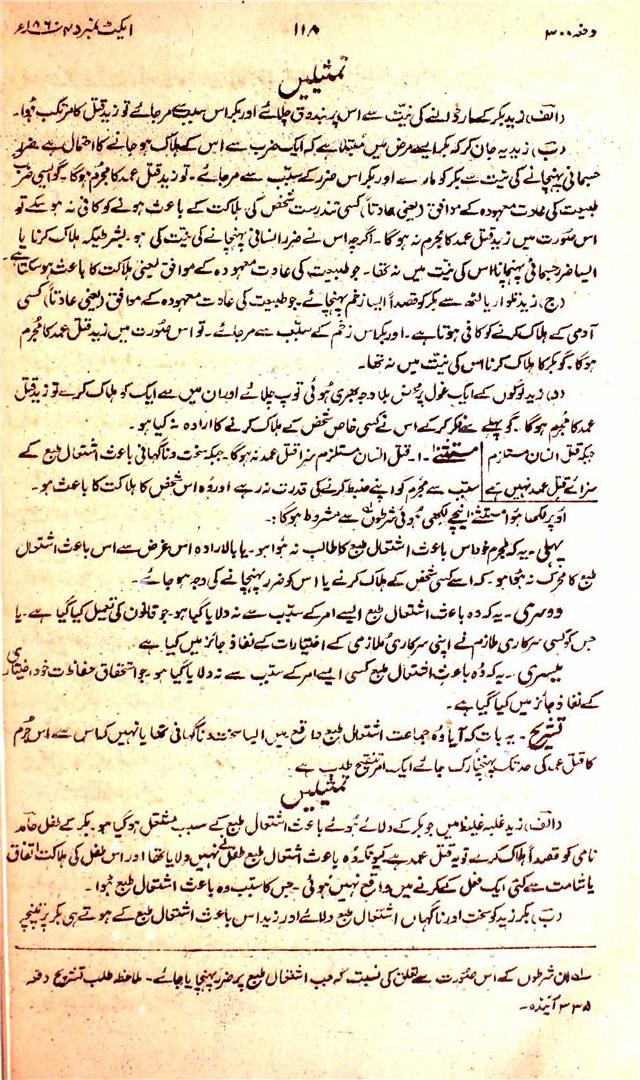 دفعہ ۳۰۰
۱۱۸
ایکٹ نمبر ۴۵ ۱۸۶۰ء
تمثیلیں
(الف) زید بکر کے مار ڈالنے کی نیت سے اس پر بندوق چلائے اور بکر اس سبب سے مر جائے تو زید قتل کا مرتکب ہوا۔
(ب) زید یہ جان کر کہ بکر ایسے مرض میں مبتلا ہے کہ ایک ضرب سے اس کے ہلاک ہو جانے کا احتمال ہے ضرر
جسمانی پہنچانے کی نیت سے بکر کو مارے اور بکر اس ضرر کے سبب سے مر جائے۔ تو زید قتل عمد کا مجرم ہوگا۔ گو ایسی ضرب
طبیعت کی عادت معہودہ کے موافق (یعنی عادتاً) کسی تندرست شخص کی ہلاکت کے باعث ہونے کو کافی نہ ہو سکے تو
اس صورت میں زید قتل عمد کا مجرم نہ ہوگا۔ اگرچہ اس نے ضرر انسانی پہنچانے کی نیت کی ہو۔ بشرطیکہ ہلاک کرنا یا
ایسا ضرر جسمانی پہنچانا اس کی نیت میں نہ تھا۔ جو طبیعت کی عادت معہودہ کے موافق یعنی ہلاکت کا باعث ہو سکتا ہے۔
(ج) زید تلوار یا لٹھ سے بکر کو قصداً ایسا زخم پہنچائے۔ جو طبیعت کی عادت معہودہ کے موافق (یعنی عادتاً) کسی
آدمی کے ہلاک کرنے کو کافی ہوتا ہے۔ اور بکر اس زخم کے سبب سے مر جائے۔ تو اس صورت میں زید قتل عمد کا مجرم
ہوگا۔ گو بکر کا ہلاک کرنا اس کی نیت میں نہ تھا۔
(د) زید لوگوں کے ایک غول پر محض بلا وجہ بھری ہوئی توپ چلائے اور ان میں سے ایک کو ہلاک کرے تو زید قتل
عمد کا مجرم ہوگا۔ گو پہلے سے فکر کر کے اس نے کسی خاص شخص کے ہلاک کرنے کا ارادہ نہ کیا ہو۔
جبکہ قتل انسان مستلزم
سزائے قتل عمد نہیں ہے
مستثنےٰ ۱۔ قتل انسان مستلزم سزا قتل عمد نہ ہوگا۔ جبکہ سخت و ناگہانی باعث اشتعال طبع کے
سبب سے مجرم کو اپنے ضبط کرنے کی قدرت نہ رہے اور وہ اس شخص کا ہلاکت کا باعث ہو۔
اوپر لکھا ہوا مستثنےٰ نیچے لکھی ہوئی شرطوں سے مشروط ہوگا:۔
پہلی۔ یہ کہ مجرم خود اس باعث اشتعال طبع کا طالب نہ ہوا ہو۔ یا بالارادہ اس غرض سے اس باعث اشتعال
طبع کا محرک نہ ہوا ہو۔ کہ اسے کسی شخص کے ہلاک کرنے یا اس کو ضرر پہنچانے کی وجہ ہو جائے۔
دوسری۔ یہ کہ وہ باعث اشتعال طبع ایسے امر کے سبب سے نہ دلایا گیا ہو جو قانون کی تعمیل کیا گیا ہے۔ یا
جس کو کسی سرکاری ملازم نے اپنی سرکاری ملازمی کے اختیارات کے نفاذ جائز میں کیا ہے۔
تیسری۔ یہ کہ وہ باعث اشتعال طبع کسی ایسے امر کے سبب سے نہ دلایا گیا ہو۔ جو استحقاق حفاظت خود اختیاری
کے نفاذ جائز میں کیا گیا ہے۔
تشریح۔ یہ بات کہ آیا وہ باعث اشتعال طبع واقع میں ایسا سخت و ناگہانی تھا یا نہیں کہ اس سے اس جرم
کا قتل عمد کی حد تک پہنچنا رک جائے ایک امر تنقیح طلب ہے۔
تمثیلیں
(الف) زید غلبہ غیظ میں جو بکر کے دلائے ہوئے باعث اشتعال طبع کے سبب مشتعل ہو گیا ہو۔ بکر کے طفل حامد
نامی کو قصداً ہلاک کرے تو یہ قتل عمد ہے کیونکہ وہ باعث اشتعال طبع طفل نے نہیں دلایا تھا اور اس طفل کی ہلاکت اتفاق
یا شامت سے کسی ایک فعل کے کرنے میں واقع نہیں ہوئی۔ جس کا سبب وہ باعث اشتعال طبع ہوا۔
(ب) بکر زید کو سخت اور ناگہاں اشتعال طبع دلائے اور زید اس باعث اشتعال طبع کے ہوتے ہی بکر پر طپنچہ
ان شرطوں کے اس صورت سے تعلق کی نسبت کہ جب اشتعال طبع پر ضرر پہنچایا جائے۔ ملاحظہ طلب تشریح دفعہ
۳۳۵ آئندہ۔